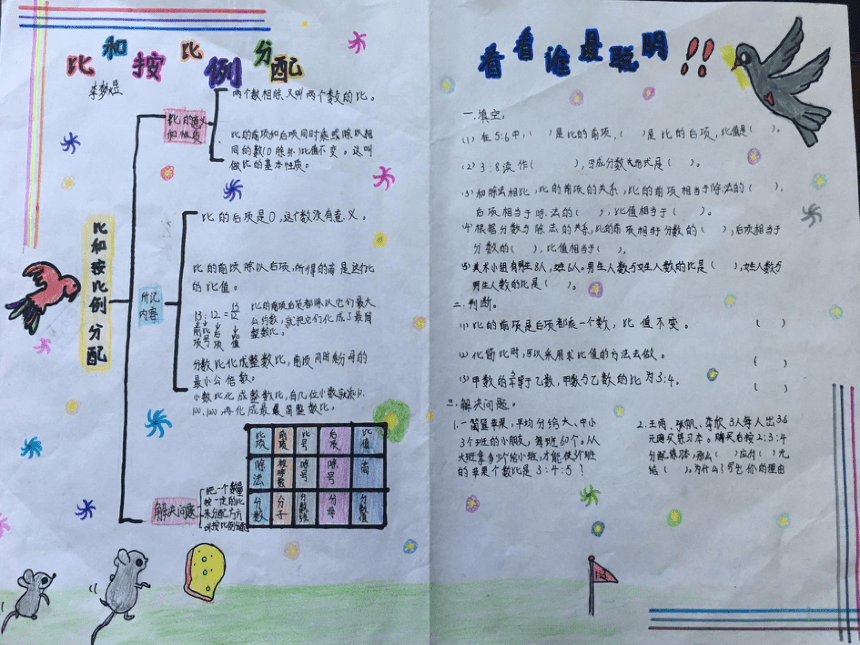 比和按比例分配
看看谁最聪明!!
比和按比例分配
比的意义
和性质
两个数相除又叫两个数的比。
比的前项和后项同时乘或除以相
同的数(0除外)比值不变。这叫
做比的基本性质。
所记
内容
比的后项是0,这个数没有意义。
比的前项除以后项,所得的商是这个比
的比值。
比的前项后项都除以它们最大
公约数,就把它们化成了最简
整数比。
分数比化成整数比,前项同时乘分母的
最小公倍数。
小数比化成整数比,看几位小数
再化成最简整数比。
解决问题
把一个数量
按一定的比
来分配
比 前项 比号 后项 比值
除法 被除数 除号 除号 商
分数 分子 分数线 分母 分数值
一.填空。
(1) 在5:6中,( )是比的前项,( )是比的后项,比值是( )。
(2) 3:8读作( ),写成分数形式是( )。
(3)和除法相比,比的前项的关系,比的前项相当于除法的( ),
后项相当于除法的( ),比值相当于( )。
(4)根据分数与除法的关系,比的前项相当于分数的( ),后项相当于
分数的( ),比值相当于( )。
(5)美术小组有男生8人,女生6人。男生人数与女生人数的比是( ),女生人数与
男生人数的比是( )。
二.判断。
(1)比的前项是后项都乘一个数,比值不变。 ( )
(2)化简比时,可以采用求比值的方法去做。 ( )
(3)甲数的等于乙数,甲数与乙数的比为3:4。 ( )
三.解决问题。
1.一筐苹果,平均分给大、中小
3个班的小朋友,每班60个。从
大班拿多少给小班,才能使3个班
的苹果个数比是3:4:5!
2.王雨、张帆、李欣3人每人出36
元购买练习本。购买后按2:3:4
分配练习本,那么( )应付( )元
给( )。为什么?写出你的理由